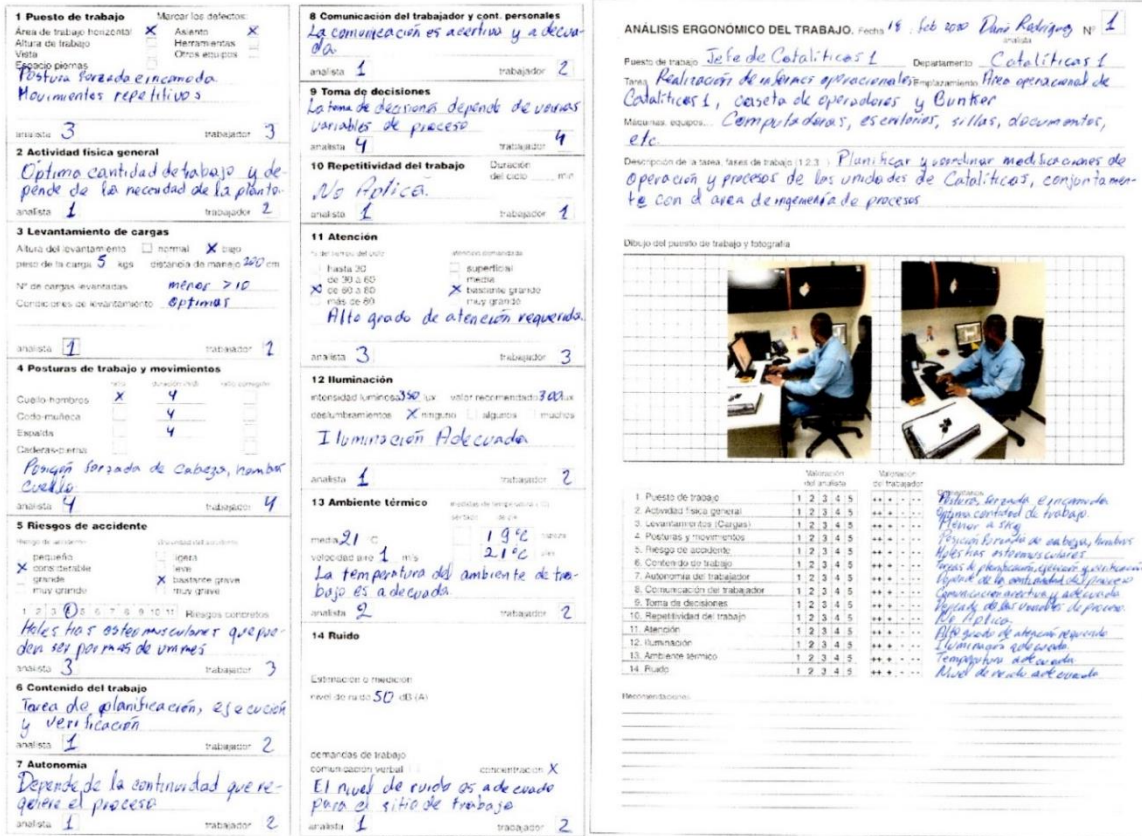 1 Puesto de trabajo Marcar los defectos:
Área de trabajo horizontal X Asiento X
Altura de trabajo Herramientas
Vista Otros equipos
Espacio piernas
Postura forzada e incomoda.
Movimientos repetitivos
analista 3 trabajador 3
2 Actividad física general
Optima cantidad de trabajo y de-
pende de la necesidad de la planta.
analista 1 trabajador 2
3 Levantamiento de cargas
Altura del levantamiento normal X bajo
peso de la carga 5 kgs distancia de manejo 200 cm
Nº de cargas levantadas menor >10
Condiciones de levantamiento optimas
analista 1 trabajador 1
4 Posturas de trabajo y movimientos
Cuello-hombros X 4
Codo-muñeca 4
Espalda 4
Caderas-pierna
Posición forzada de cabeza, hombros
cuello.
analista 4 trabajador 4
5 Riesgos de accidente
pequeño ligera
X considerable leve
grande X bastante grave
muy grande muy grave
1 2 3 4 5 6 7 8 9 10 11 Riesgos concretos
Molestias osteomusculares que pue-
den ser por mas de
analista 3 trabajador 3
6 Contenido del trabajo
Tarea de planificación, ejecución
y verificación
analista 1 trabajador 2
7 Autonomía
Depende de la continuidad que re-
quiere el proceso
analista 1 trabajador 2
8 Comunicación del trabajador y cont. personales
La comunicación es acertiva y adecua-
da.
analista 1 trabajador 2
9 Toma de decisiones
La toma de decisiones depende de varias
variables de proceso
analista 4 trabajador 4
10 Repetitividad del trabajo Duración
del ciclo min
No Aplica.
analista 1 trabajador 1
11 Atención
hasta 30 superficial
de 30 a 60 media
X de 60 a 80 X bastante grande
más de 80 muy grande
Alto grado de atención requerida.
analista 3 trabajador 3
12 Iluminación
intensidad luminosa 350 lux valor recomendado 300 lux
deslumbramientos X ninguno algunos muchos
Iluminación Adecuada
analista 1 trabajador 2
13 Ambiente térmico
19°C
media 21 °C 21°C
velocidad aire 1 m/s
La temperatura del ambiente de tra-
bajo es adecuada.
analista 2 trabajador 2
14 Ruido
Estimación o medición
nivel de ruido 50 dB (A)
demandas de trabajo
comunicación verbal concentración X
El nivel de ruido es adecuado
para el sitio de trabajo
analista 1 trabajador 2
ANÁLISIS ERGONÓMICO DEL TRABAJO. Fecha 18 Feb 2020 Rodríguez Nº 1
analista
Puesto de trabajo Jefe de Cataliticas 1 Departamento Catalíticas 1
Tarea Realización de informes operacionales Emplazamiento Area operacional de
Cataliticas 1, caseta de operadores y Bunker
Máquinas, equipos... Computadoras, escritorios, sillas, documentos,
etc.
Descripción de la tarea, fases de trabajo (1,2,3...) Planificar y coordinar modificaciones de
operación y procesos de las unidades de Cataliticas, conjuntamen-
te con el area de ingeniería de procesos
Dibujo del puesto de trabajo y fotografía
Valoración Valoración
del analista del trabajador
1. Puesto de trabajo 1 2 3 4 5 ++ + - -- Postura forzada e incomoda
2. Actividad física general 1 2 3 4 5 ++ + - -- Optima cantidad de trabajo.
3. Levantamientos (Cargas) 1 2 3 4 5 ++ + - -- Menor a 5kg
4. Posturas y movimientos 1 2 3 4 5 ++ + - -- Posición forzada de cabeza, hombros
5. Riesgo de accidente 1 2 3 4 5 ++ + - -- Molestias osteomusculares
6. Contenido de trabajo 1 2 3 4 5 ++ + - -- Tareas de planificación, ejecución y verificación
7. Autonomía del trabajador 1 2 3 4 5 ++ + - -- Depende de la continuidad del proceso
8. Comunicación del trabajador 1 2 3 4 5 ++ + - -- Comunicación asertiva y adecuada
9. Toma de decisiones 1 2 3 4 5 ++ + - -- Depende de las variables de proceso.
10. Repetitividad del trabajo 1 2 3 4 5 ++ + - -- No Aplica
11. Atención 1 2 3 4 5 ++ + - -- Alto grado de atención requerido
12. Iluminación 1 2 3 4 5 ++ + - -- Iluminación adecuada
13. Ambiente térmico 1 2 3 4 5 ++ + - -- Temperatura adecuada
14. Ruido 1 2 3 4 5 ++ + - -- Nivel de ruido adecuado
Recomendaciones